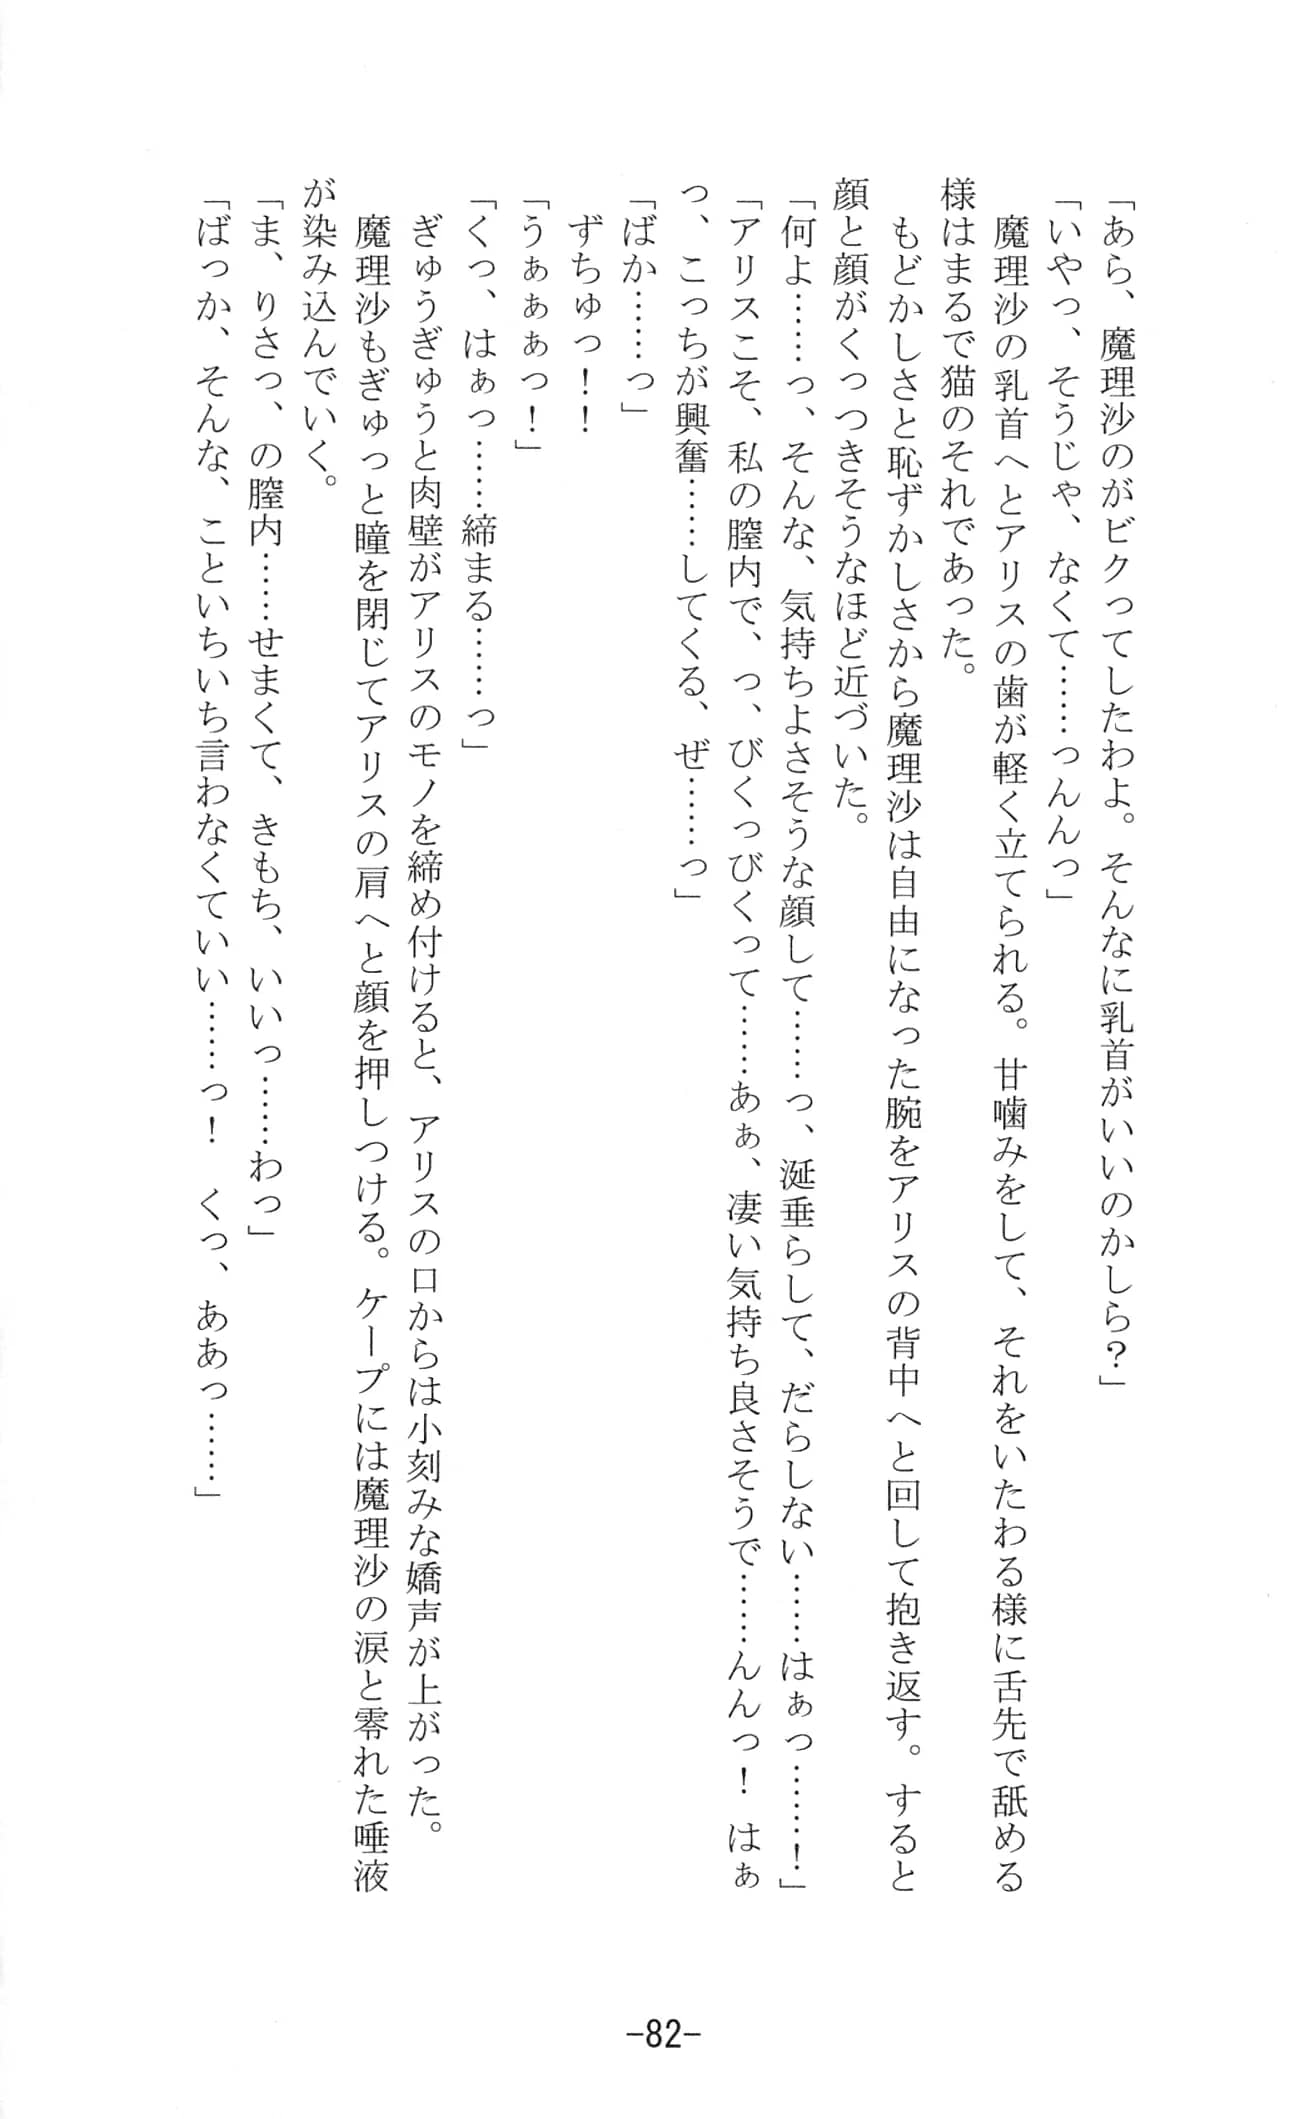 「あら、魔理沙のがビクってしたわよ。そんなに乳首がいいのかしら？」
「いやっ、そうじゃ、なくて……っんんっ」
　魔理沙の乳首へとアリスの歯が軽く立てられる。甘噛みをして、それをいたわる様に舌先で舐める
様はまるで猫のそれであった。
　もどかしさと恥ずかしさから魔理沙は自由になった腕をアリスの背中へと回して抱き返す。すると
顔と顔がくっつきそうなほど近づいた。
「何よ……っ、そんな、気持ちよさそうな顔して……っ、涎垂らして、だらしない……はぁっ……！」
「アリスこそ、私の膣内で、っ、びくっびくって……あぁ、凄い気持ち良さそうで……んんっ！はぁ
っ、こっちが興奮……してくる、ぜ……っ」
「ばか……っ」
　ずちゅっ！！
「うぁぁぁっ！」
「くっ、はぁっ……締まる……っ」
　ぎゅうぎゅうと肉壁がアリスのモノを締め付けると、アリスの口からは小刻みな嬌声が上がった。
　魔理沙もぎゅっと瞳を閉じてアリスの肩へと顔を押しつける。ケープには魔理沙の涙と零れた唾液
が染み込んでいく。
「ま、りさっ、の膣内……せまくて、きもち、いいっ……わっ」
「ばっか、そんな、こといちいち言わなくていい……っ！　くっ、ああっ……」
-82-